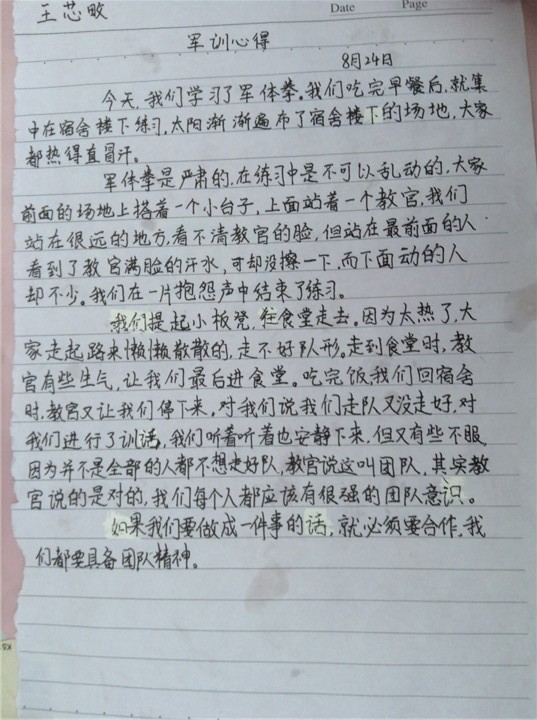 王芯畋
Date Page
军训心得
8月24日
今天，我们学习了军体拳。我们吃完早餐后，就集
中在宿舍楼下练习，太阳渐渐遍布了宿舍楼下的场地，大家
都热得直冒汗。
军体拳是严肃的，在练习中是不可以乱动的，大家
前面的场地上搭着一个小台子，上面站着一个教官，我们
站在很远的地方，看不清教官的脸，但站在最前面的人
看到了教官满脸的汗水，可却没擦一下，而下面动的人
却不少。我们在一片抱怨声中结束了练习。
我们提起小板凳，往食堂走去。因为太热了，大
家走起路来懒懒散散的，走不好队形。走到食堂时，教
官有些生气，让我们最后进食堂。吃完饭我们回宿舍
时，教官又让我们停下来，对我们说我们走队又没走好，对
我们进行了训话，我们听着听着也安静下来，但又有些不服，
因为并不是全部的人都不想走好队，教官说这叫团队，其实教
官说的是对的，我们每个人都应该有很强的团队意识。
如果我们要做成一件事的话，就必须要合作，我
们都要具备团队精神。